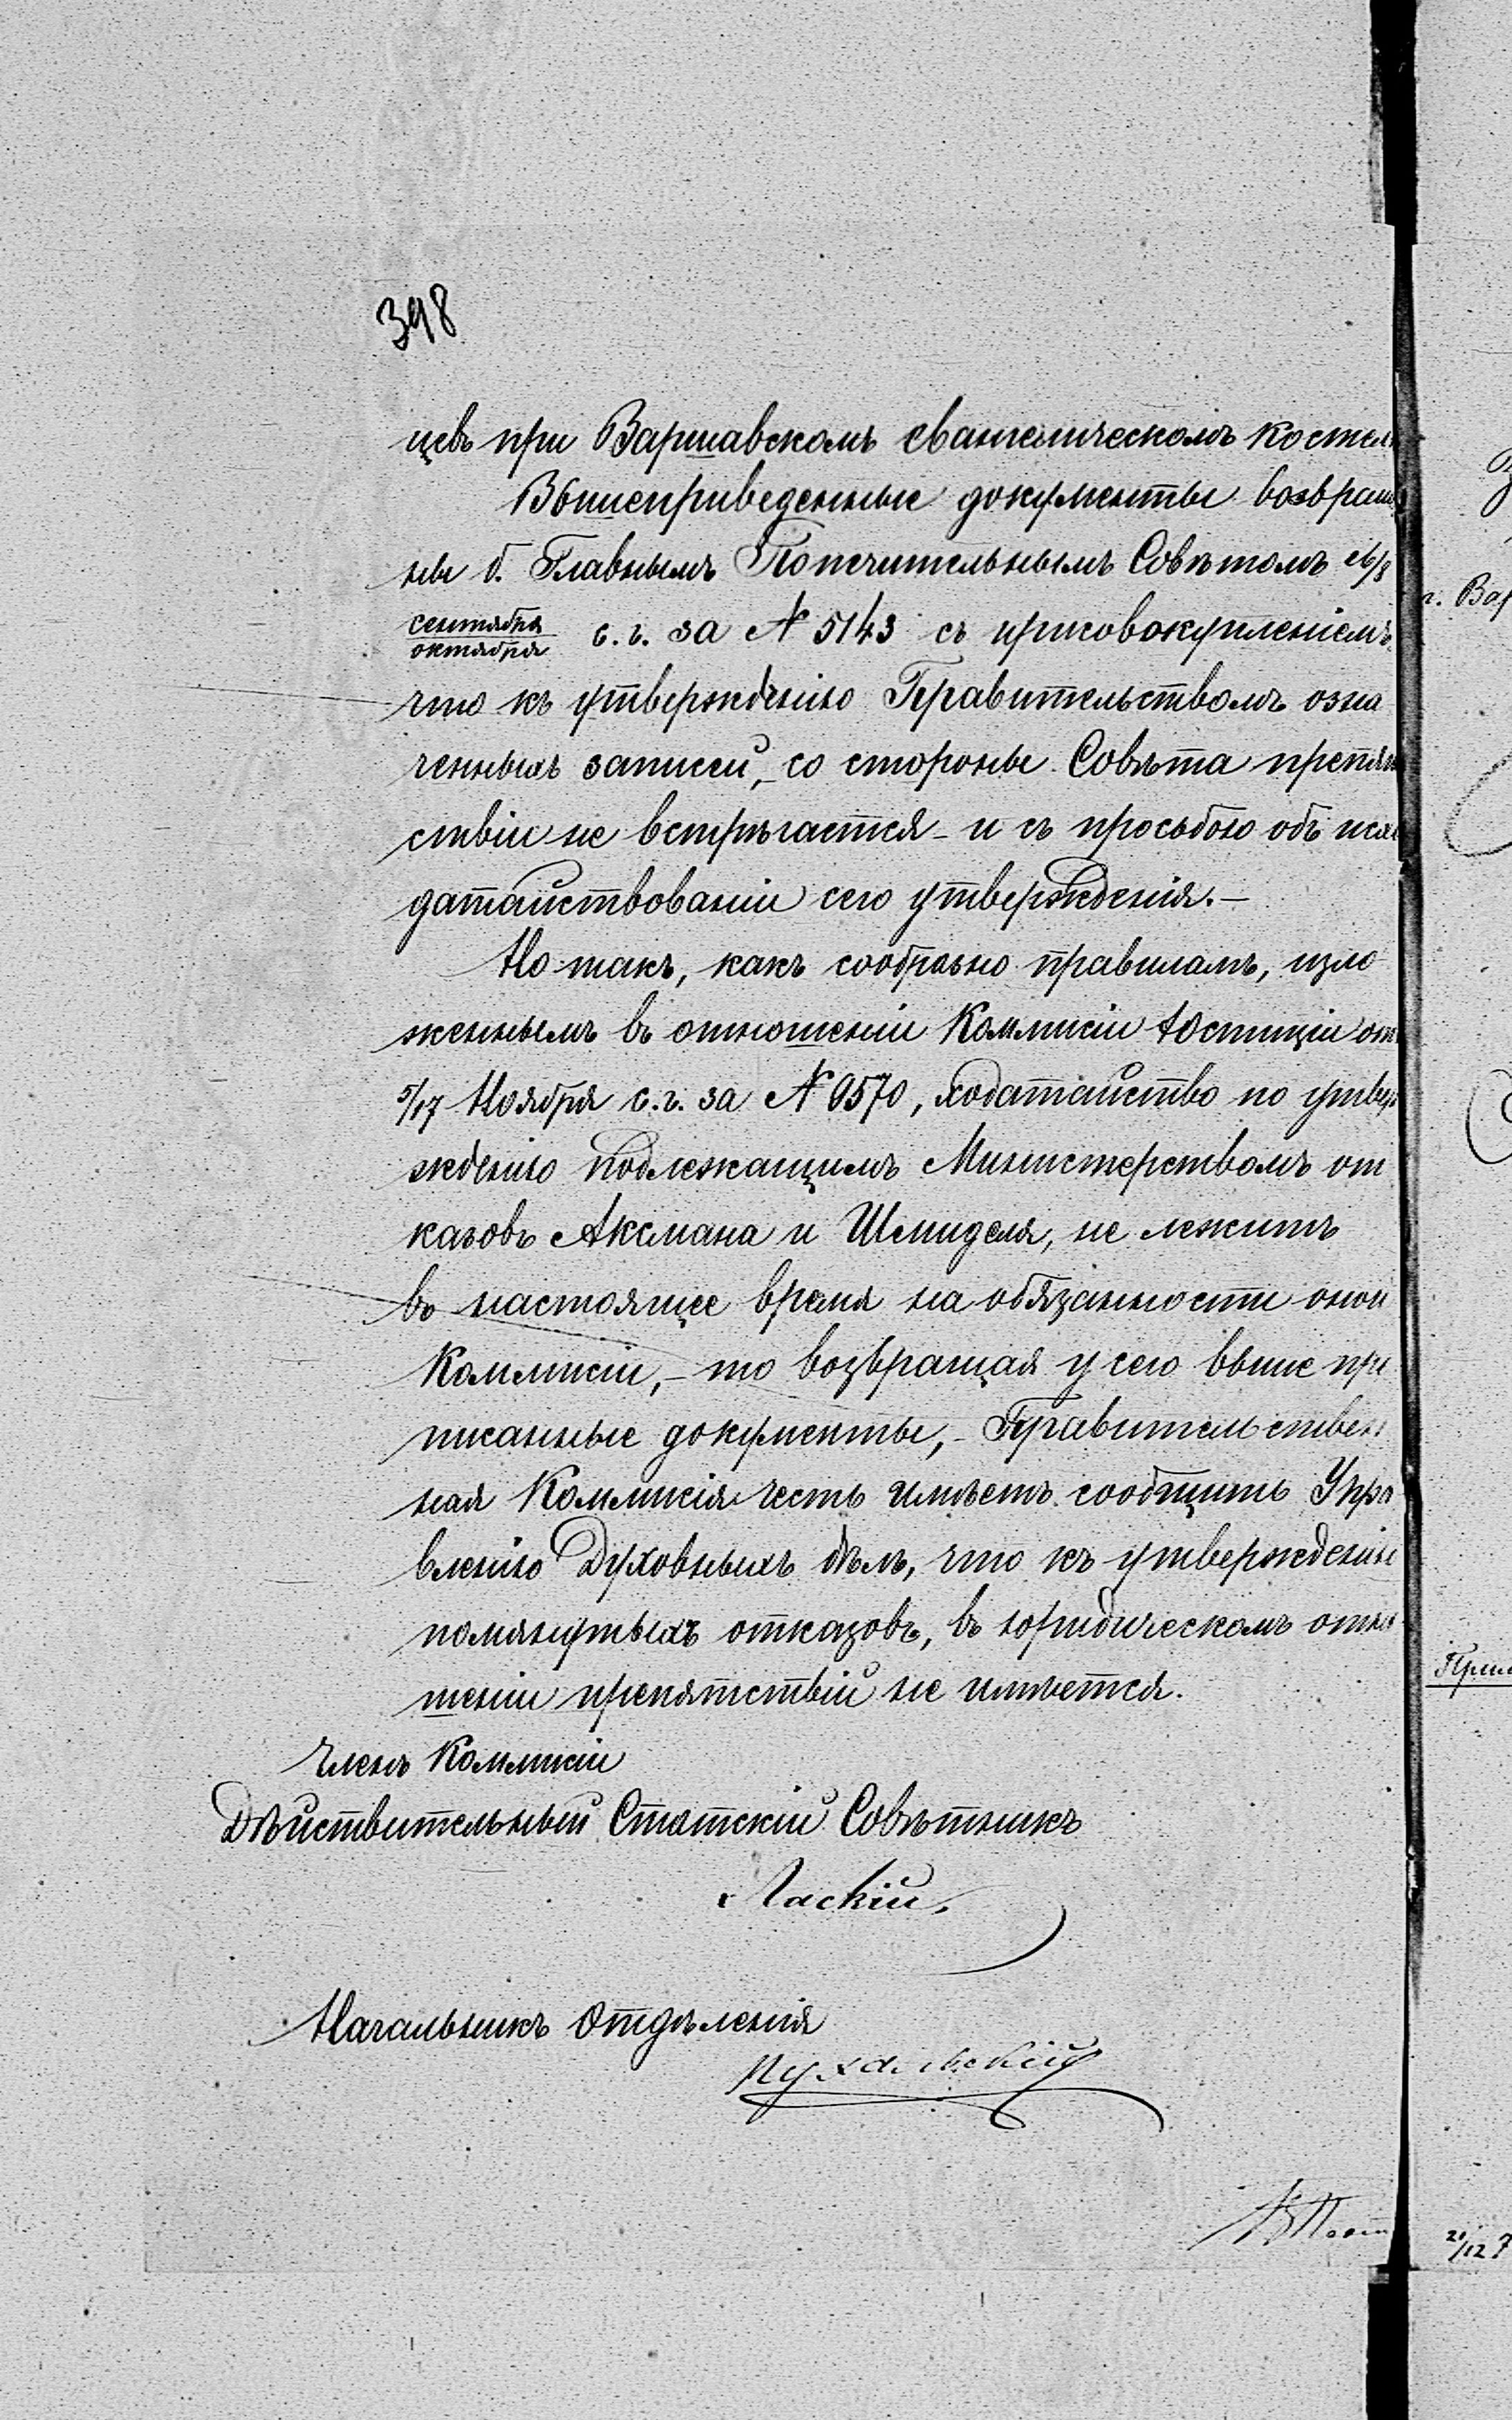 398
цевъ при Варшавскомъ евангелическомъ костел
Вышеприведенные документы возвращ
ны б. Главнымъ Попечительнымъ Совѣтомъ 26/8
сентября
октября с. г. за № 5143 съ присовокупленіемъ,
что къ утвержденію Правительствомъ озна
ченныхъ записей, – со стороны Совѣта препят
ствіи не встрѣчается – и съ просьбою объ исхо
датайствованіи сего утвержденія. –
Но такъ, какъ сообразно правиламъ, изло
женнымъ въ отношеніи Коммисіи Юстиціи отъ
5/17 Ноября с. г. за № 9570, ходатайство по утвер
жденію подлежащимъ Министерствомъ от
казовъ Аксмана и Шмиделя, не лежитъ
въ настоящее время на обязанности оной
Коммисіи, – то возвращая у сего выше при
писанные документы, – Правительствен
ная Коммисія честь имѣетъ сообщить Упра
вленію Духовныхъ дѣлъ, что къ утвержденію
помянутыхъ отказовъ, въ юридическомъ отно
шеніи препятствій не имѣется.
Членъ Коммисіи
Дѣйствительный Статскій Совѣтникъ
Ласкій
Начальникъ Отдѣленія
г. Вар
21/12